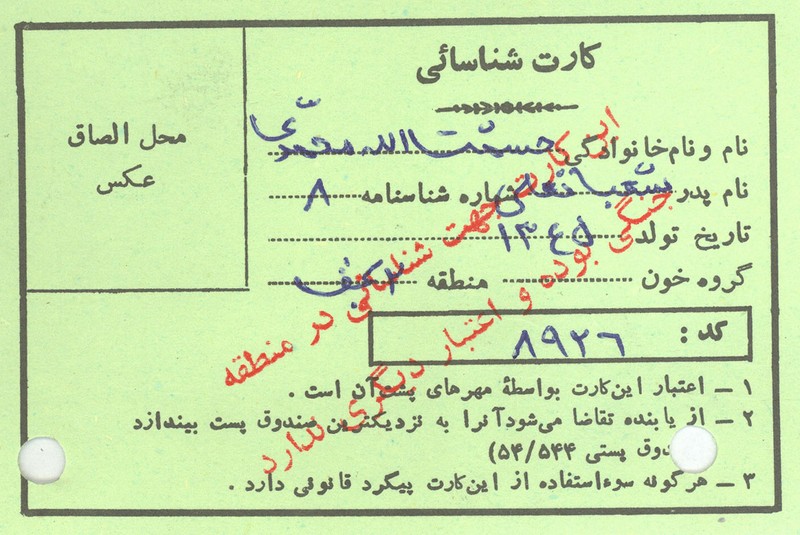 کارت شناسائی
محل الصاق
عکس
نام و نام‌خانوادگی حشمت الله محمدی
نام پدر شعبانعلی شماره شناسنامه ۸
تاریخ تولد ۱۳۴۵
گروه خون منطقه
کد : ۸۹۲۶
۱ ـ اعتبار این‌کارت بواسطهٔ مهرهای پشت‌آن است .
۲ ـ از یابنده تقاضا می‌شودآنرا به نزدیکترین صندوق پست بیندازد
دوق پستی ۵۴/۵۴۴)
۳ ـ هرگونه سوءاستفاده از این‌کارت پیگرد قانونی دارد .
این کارت جهت شناسائی در منطقه
جنگی بوده و اعتبار دیگری ندارد